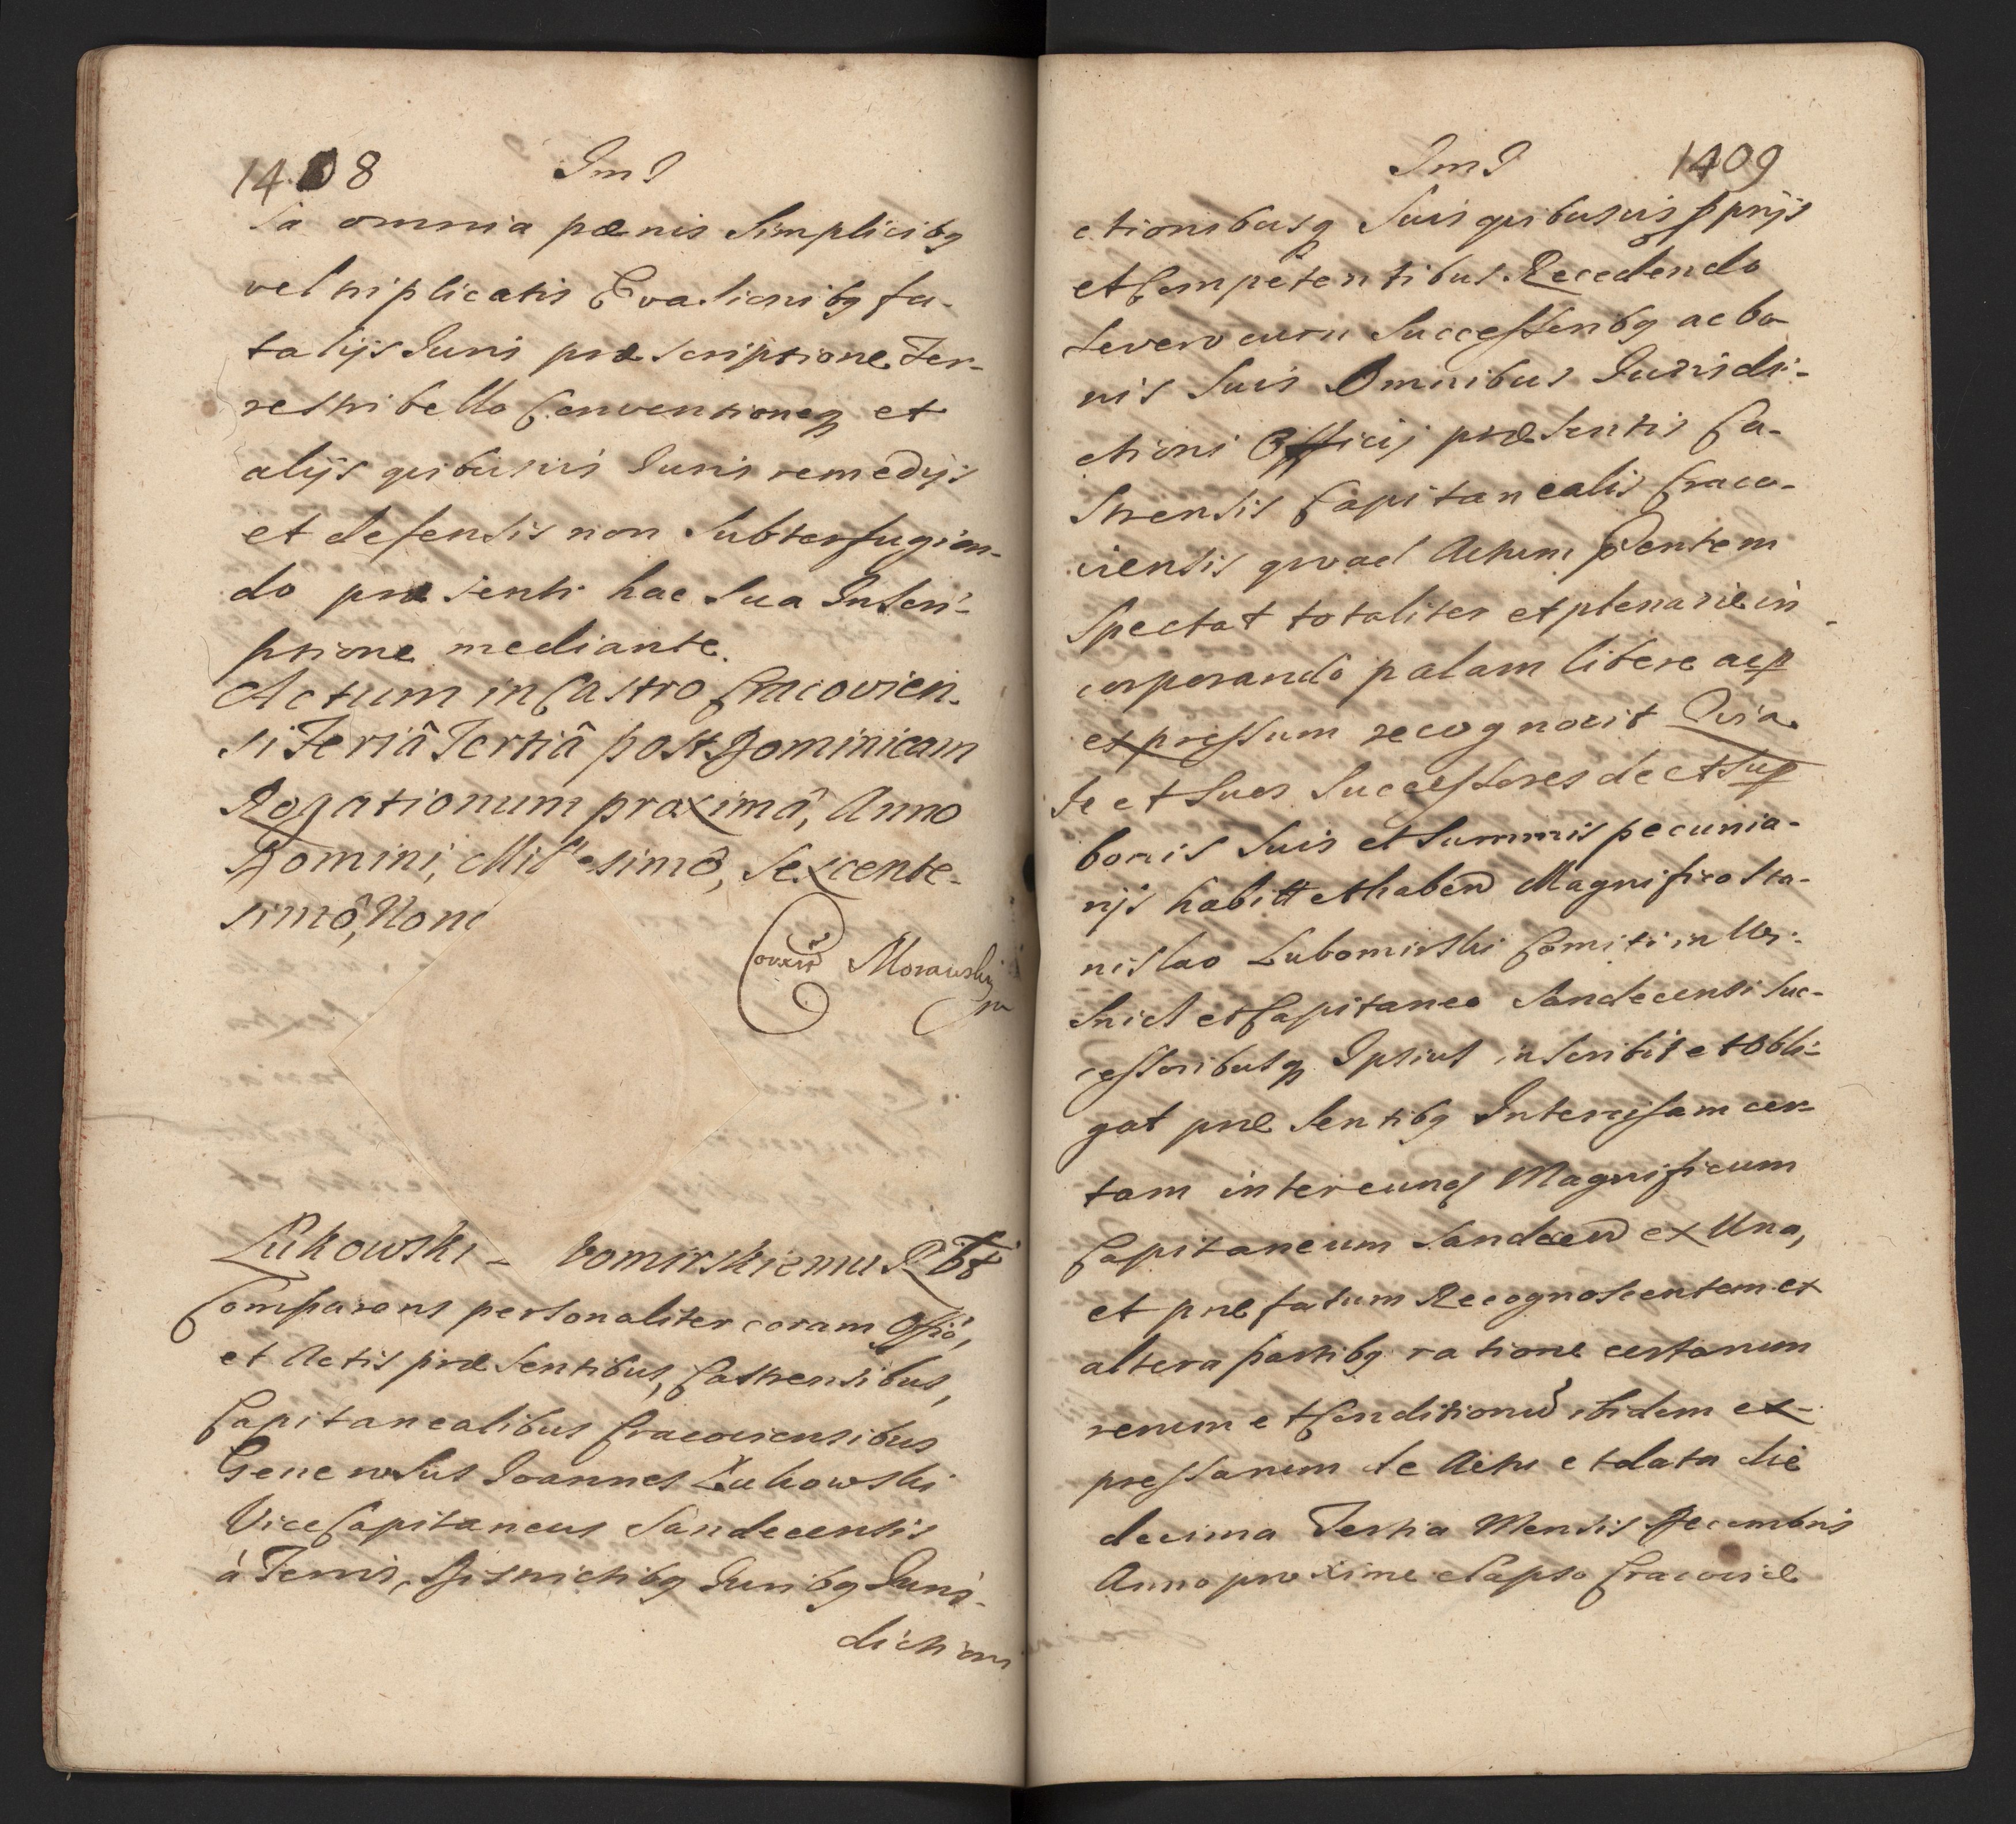 1408 ImJ
ia omnia pœnis Simplicibq
vel triplicatis Evasionibq fa-
talijs Juris præscriptione Ter-
restri bello Conventioneq et
alijs quibusvis Juris remedijs
et defensis non Subterfugien-
do præsenti hac Sua Inscri-
ptione mediante.
Actum in Castro Cracovien-
si Feriâ Tertiâ post Dominicam
Rogationum proximâ, Anno
Domini, Mill esimô, Sexcente-
simô, Non
Corrxit Morawski
mp
Lukowski - bomirskiemu
Comparens personaliter coram Offiô,
et Actis præsentibus, Castrensibus,
Capitanealibus Cracoviensibus
Generosus Joannes Lukowski
ViceCapitaneus Sandecensis
à Terris, Districtibq Juribq Juris-
diction
ImJ 1409
ctionibusq Suis quibusvis pprijs
et Competentibus. Recedendo
Se vero cum Successoribq ac bo-
nis Suis Omnibus Jurisdi-
ctioni Officij præsentis Ca-
Strensis Capitanealis Craco-
viensis quoad Actum pntem
Spectat totaliter et plenarie in
corporando palam libere ac p
expressum recognovit Quia
Se et Suos Successores de et sup
bonis Suis et Summis pecunia-
rijs habitt et haben Magnifico Sta-
nislao Lubomirski Comiti in Wi-
Snicz et Capitaneo Sandecensi Suc-
cessoribusq Ipsius inscribit et Obli-
gat præsentibq Intercisam cer-
tam inter eundq Magnificum
Capitaneum Sandecen ex Una,
et præfatum Recognoscentem ex
altera partibq ratione certarum
rerum et Conditionu ibidem ex-
pressarum de Actu et data die
decima Tertia Mensis Decembris
Anno proxime elapso Cracoviæ